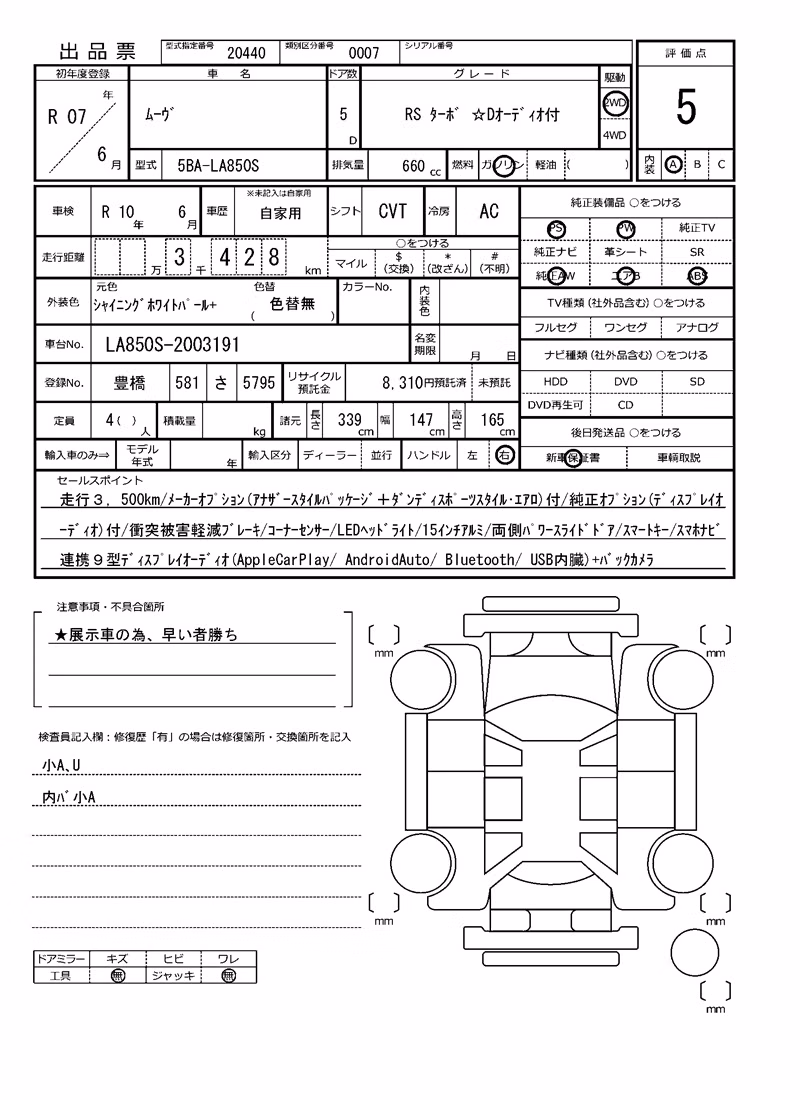 出品票 型式指定番号 20440 類別区分番号 0007 シリアル番号
評価点
初年度登録 車名 ドア数 グレード 駆動
R 07 年 6 月 ﾑｰｳﾞ 5 D RS ﾀｰﾎﾞ ☆Dｵｰﾃﾞｨｵ付 2WD 4WD
5
型式 5BA-LA850S 排気量 660 cc 燃料 ガソリン 軽油 ( )
内装 A B C
車検 R 10 年 6 月 車歴 ※未記入は自家用 自家用 シフト CVT 冷房 AC
純正装備品 ○をつける
PS PW 純正TV
純正ナビ 革シート SR
純正AW エアB ABS
走行距離 万 3 千 4 2 8 km
○をつける
マイル $(交換) *(改ざん) #(不明)
外装色 元色 ｼｬｲﾆﾝｸﾞﾎﾜｲﾄﾊﾟｰﾙ+ 色替 ( 色替無 ) カラーNo. 内装色
TV種類(社外品含む)○をつける
フルセグ ワンセグ アナログ
車台No. LA850S-2003191 名変期限 月 日
ナビ種類(社外品含む)○をつける
HDD DVD SD
DVD再生可 CD
登録No. 豊橋 581 さ 5795 リサイクル預託金 8,310円預託済 未預託
定員 4( ) 人 積載量 kg 諸元 長さ 339 cm 幅 147 cm 高さ 165 cm
後日発送品 ○をつける
新車保証書 車輌取説
輸入車のみ⇒ モデル年式 年 輸入区分 ディーラー 並行 ハンドル 左 右
セールスポイント
走行３．500km/ﾒｰｶｰｵﾌﾟｼｮﾝ(ｱﾅｻﾞｰｽﾀｲﾙﾊﾟｯｹｰｼﾞ＋ﾀﾞﾝﾃﾞｨｽﾎﾟｰﾂｽﾀｲﾙ･ｴｱﾛ)付/純正ｵﾌﾟｼｮﾝ(ﾃﾞｨｽﾌﾟﾚｲｵ
ｰﾃﾞｨｵ)付/衝突被害軽減ﾌﾞﾚｰｷ/ｺｰﾅｰｾﾝｻｰ/LEDﾍｯﾄﾞﾗｲﾄ/15ｲﾝﾁｱﾙﾐ/両側ﾊﾟﾜｰｽﾗｲﾄﾞﾄﾞｱ/ｽﾏｰﾄｷｰ/ｽﾏﾎﾅﾋﾞ
連携９型ﾃﾞｨｽﾌﾟﾚｲｵｰﾃﾞｨｵ(AppleCarPlay/ AndroidAuto/ Bluetooth/ USB内臓)+ﾊﾞｯｸｶﾒﾗ
注意事項・不具合箇所
★展示車の為、早い者勝ち
mm mm
検査員記入欄：修復歴「有」の場合は修復箇所・交換箇所を記入
小A､U
内ﾊﾞ小A
mm mm
ドアミラー キズ ヒビ ワレ
工具 無 ジャッキ 無
mm